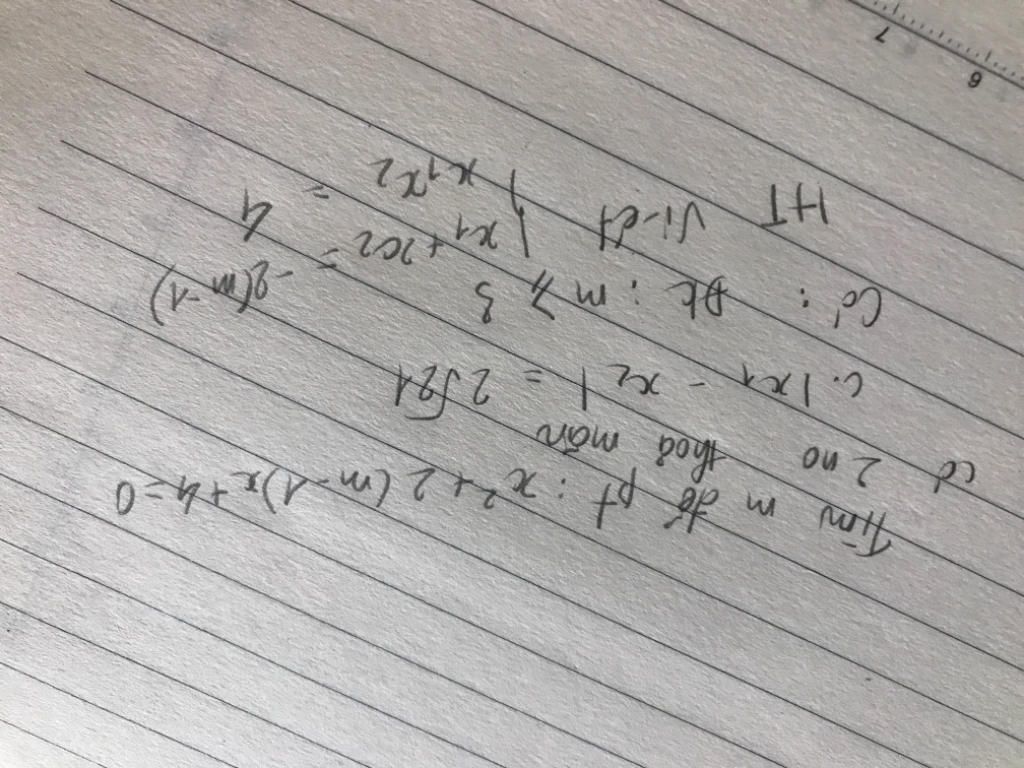 Tìm m để pt : x² + 2(m-1)x + 4 = 0
có 2 no thoả mãn
c. |x1 - x2| = 2√21
Có : Đk : m ≥ 3
HT Vi-ét { x1 + x2 = -2(m-1)
x1x2 = 4
7 6